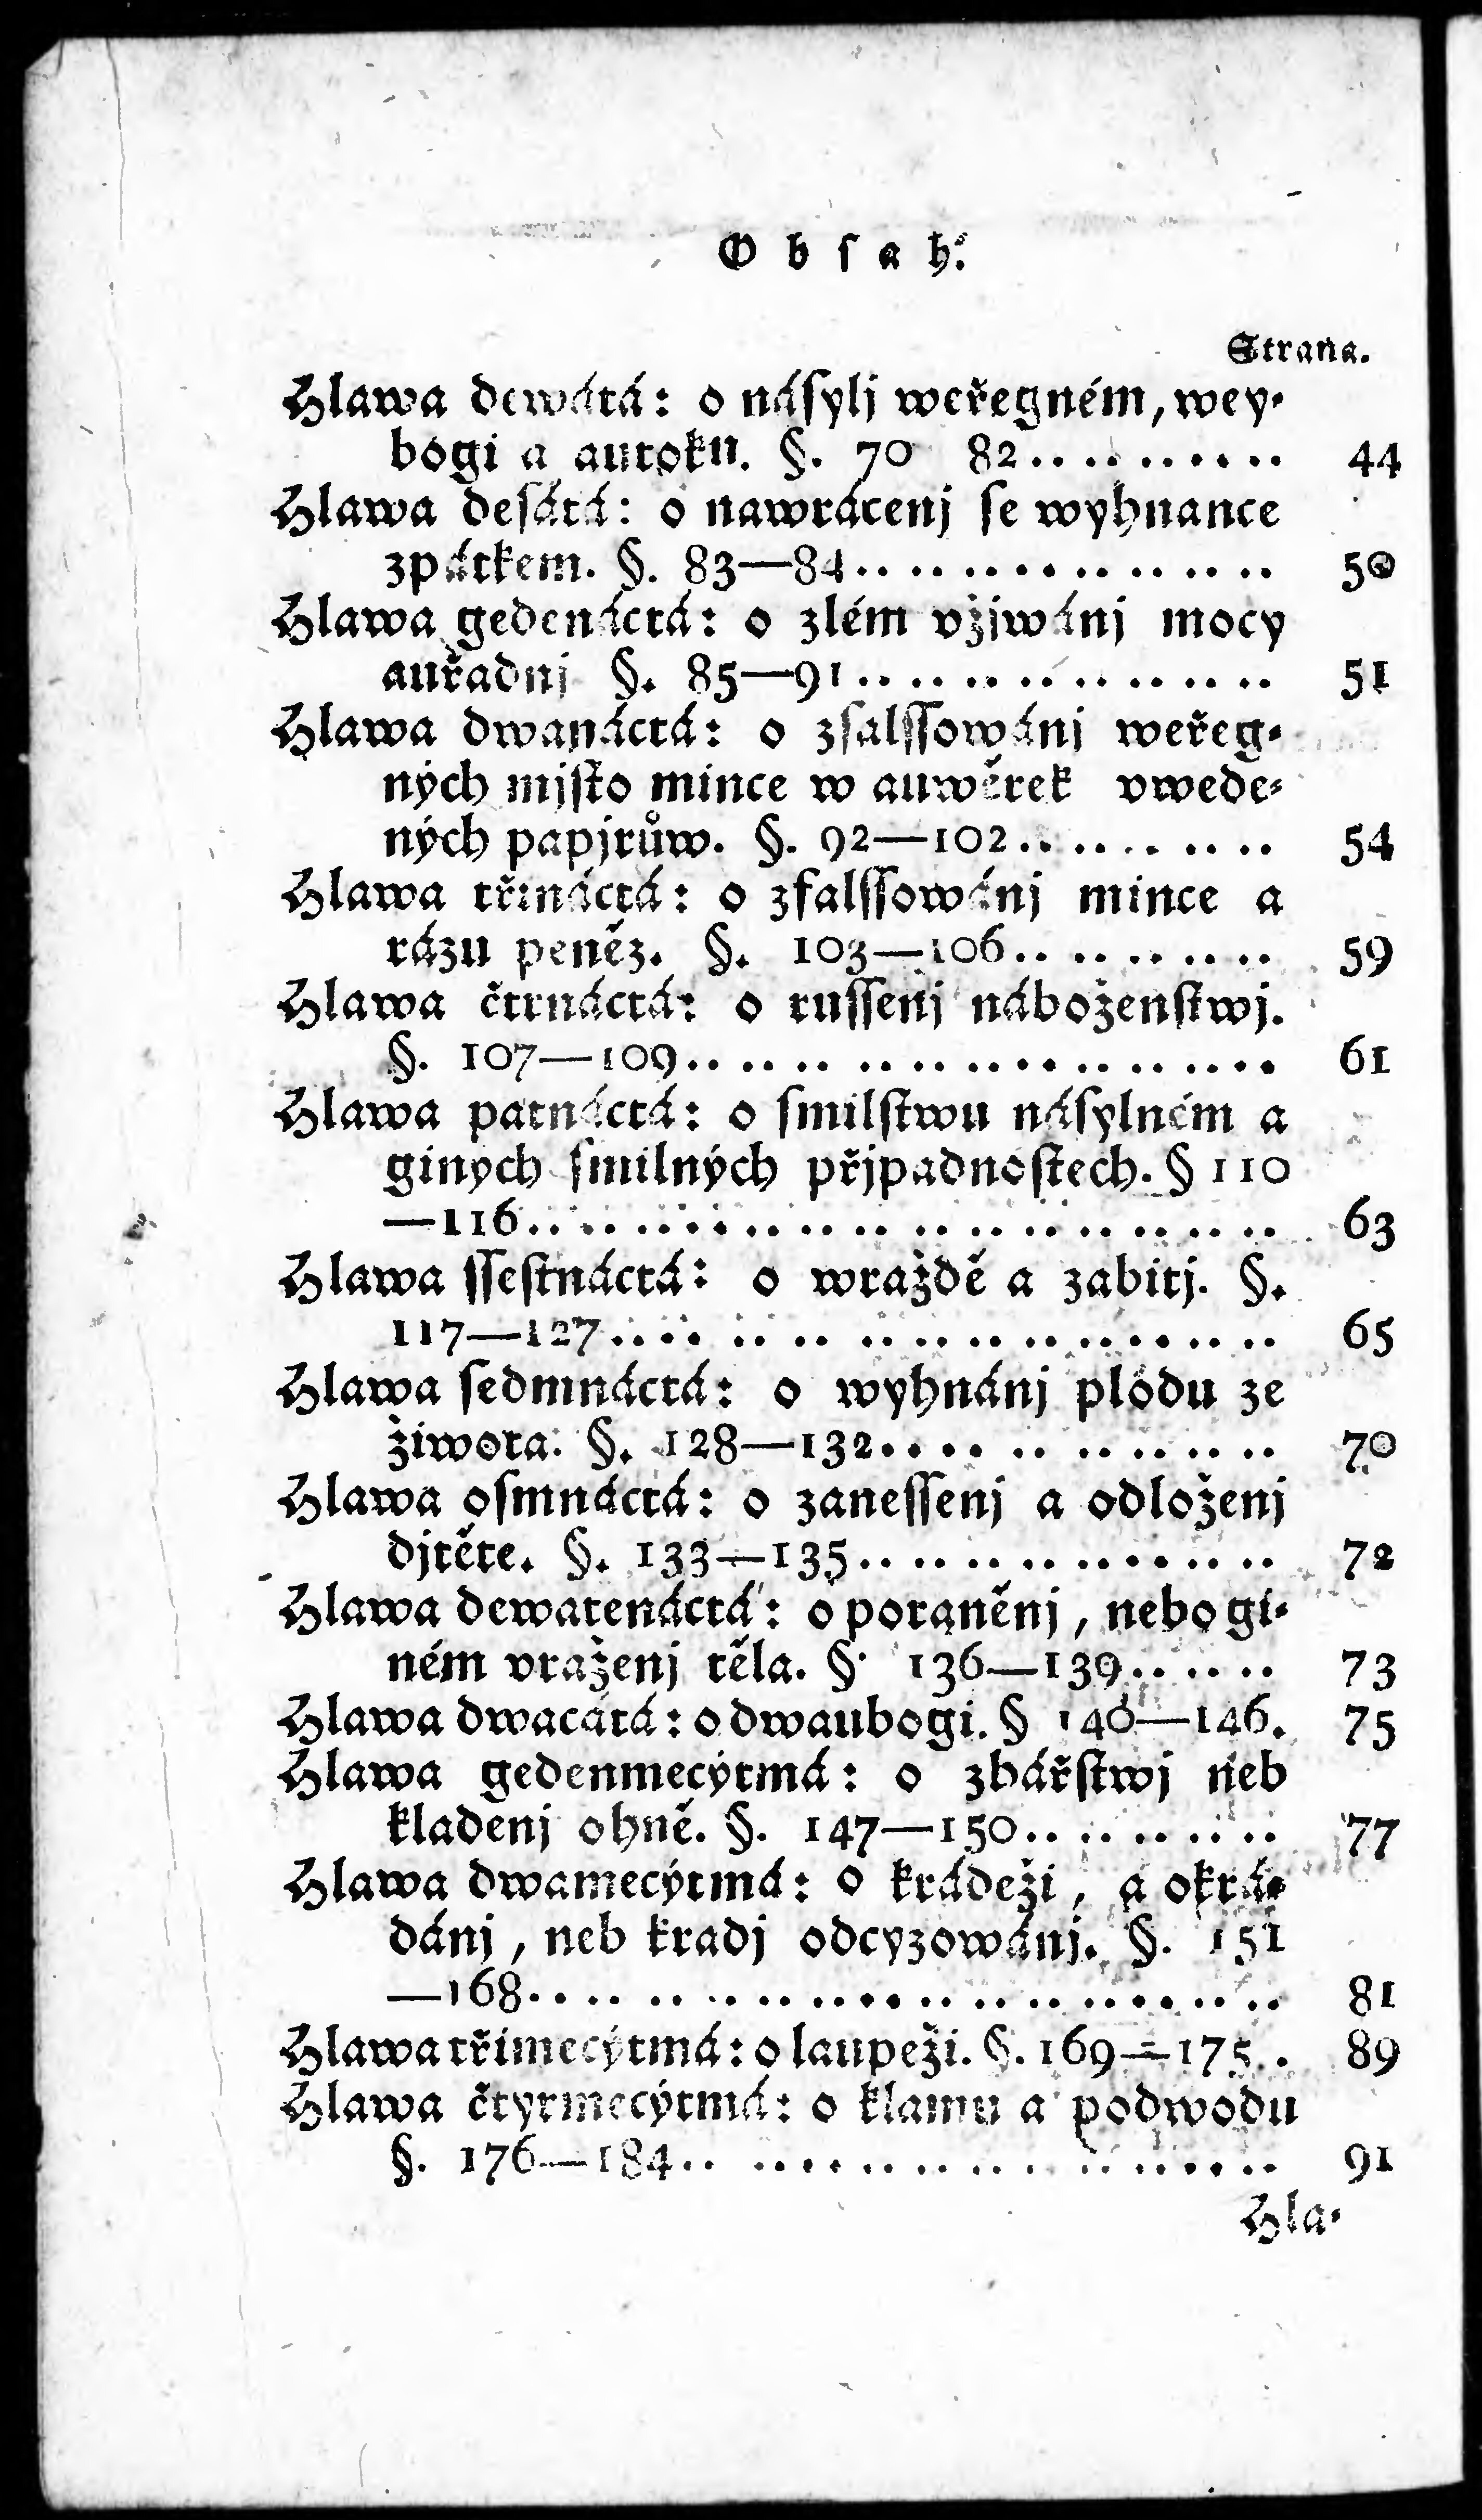 Obſah.
Strana.
Hlawa dewátá: o náſylj weřegném, wey-
bogi a autoku. §. 70 82.......... 44
Hlawa deſátá: o nawrácenj ſe wyhnance
zpátkem. §. 83—84................ 50
Hlawa gedenáctá: o zlém vžjwánj mocy
auřadnj §. 85—91................ 51
Hlawa dwanáctá: o zfalſſowánj weřeg-
ných mjſto mince w auwěrek vwede-
ných papjrůw. §. 92—102.......... 54
Hlawa třináctá: o zfalſſowánj mince a
rázu peněz. §. 103—106.......... 59
Hlawa čtrnáctá: o ruſſenj náboženſtwj.
§. 107—109...................... 61
Hlawa patnáctá: o ſmilſtwu náſylném a
giných ſmilných přjpadnoſtech. § 110
—116............................ 63
Hlawa ſſeſtnáctá: o wraždě a zabitj. §.
117—127........................ 65
Hlawa ſedmnáctá: o wyhnánj plodu ze
žiwota. §. 128—132.............. 70
Hlawa oſmnáctá: o zaneſſenj a odloženj
djtěte. §. 133—135................ 72
Hlawa dewatenáctá: o poraněnj, nebo gi-
ném vraženj těla. § 136—139...... 73
Hlawa dwacátá: o dwaubogi. § 140—146. 75
Hlawa gedenmecýtmá: o zhářſtwj neb
kladenj ohně. §. 147—150.......... 77
Hlawa dwamecýtmá: o krádeži, a okrá-
dánj, neb kradj odcyzowánj. §. 151
—168............................ 81
Hlawa třimecýtmá: o laupeži. §. 169—175.. 89
Hlawa čtyrmecýtmá: o klamu a podwodu
§. 176—184...................... 91
Hla-